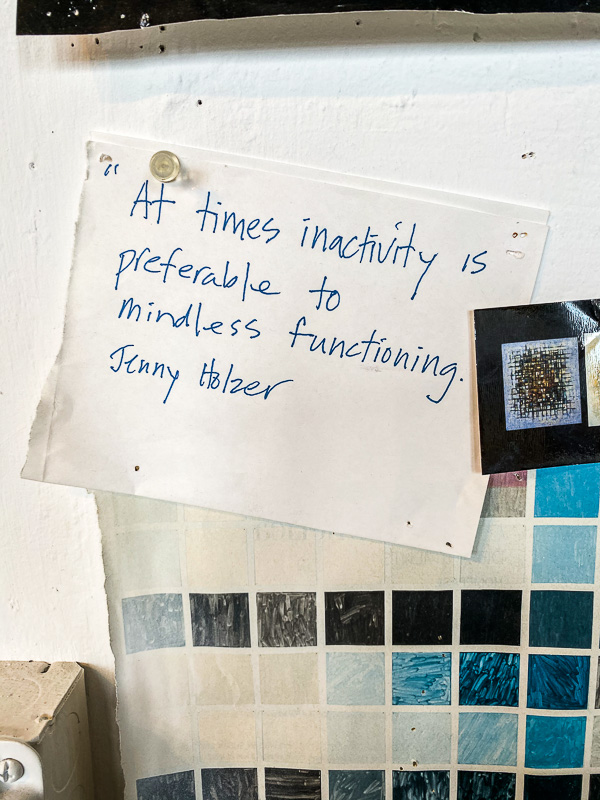 " At times inactivity is
preferable to
mindless functioning.
Jenny Holzer